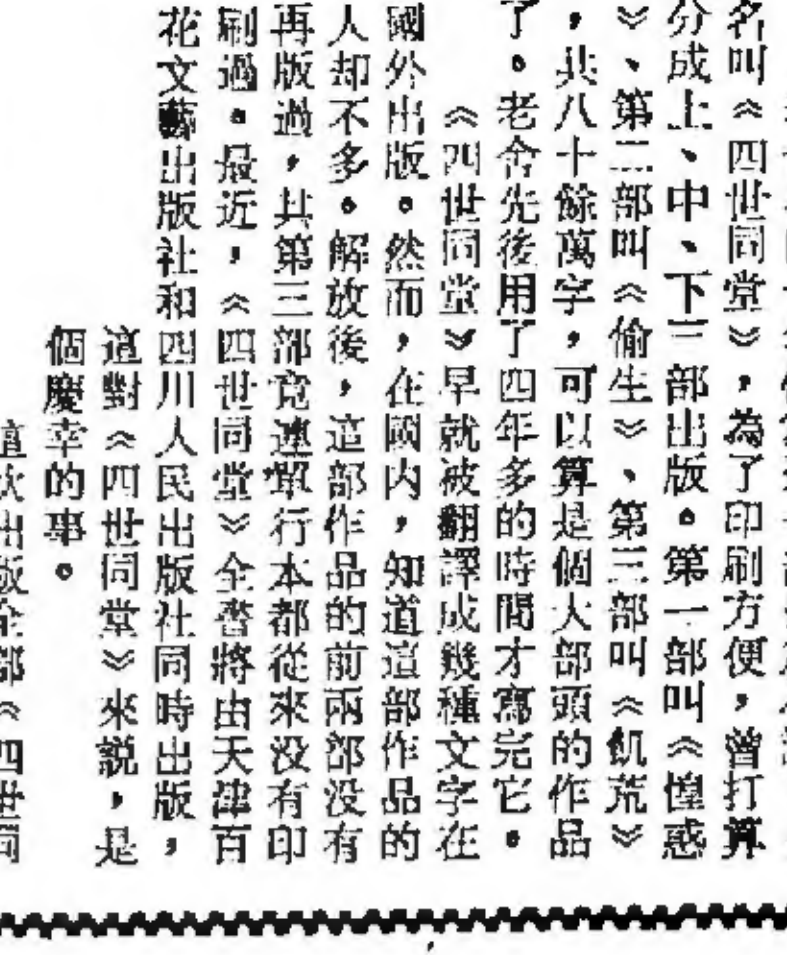 名叫《四世同堂》,為了印刷方便,曾打算
分成上、中、下三部出版。第一部叫《惶惑
》、第二部叫《偷生》、第三部叫《飢荒》
,共八十餘萬字,可以算是個大部頭的作品
了。老舍先後用了四年多的時間才寫完它。
《四世同堂》早就被翻譯成幾種文字在
國外出版。然而,在國内,知道這部作品的
人却不多。解放後,這部作品的前兩部没有
再版過,其第三部竟連單行本都從來没有印
刷過。最近,《四世同堂》全書將由天津百
花文藝出版社和四川人民出版社同時出版,
這對《四世同堂》來説,是
個慶幸的事。
這次出版全部《四世同